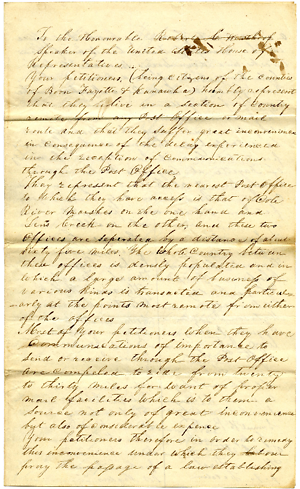 To the Honourable Robert C Winthrop
Speaker of the United States House of
Representatives...
Your petitioners, (being citizens of the counties
of Boon Fayette & Kanawha) humbly represent
that they live in a section of Country
remote from any Post Office or mail
route and that they suffer great inconvenience
in consequence of the delay experienced
in the reception of communications
through the Post Office
They represent that the nearest Post Office
to which they have access is that of Cole
River Marshes on the one hand and
Lens Creek on the other, and these two
offices are seperated by a distance of about
Sixty five miles. The whole Country between
these offices is densly populated and in
which a large amount of business of
various kinds is transacted and particul-
arly at the points most remote from either
of the offices
Most of your petitioners when they have
Communications of importance to
send or receive through the Post Office
are compelled to ride from twenty
to thirty miles for want of proper
mail facilities which is to them a
source not only of great inconvenience
but also of considerable expence
Your petitioners therefore in order to remedy
this inconvenience under which they labour
pray the passage of a law establishing